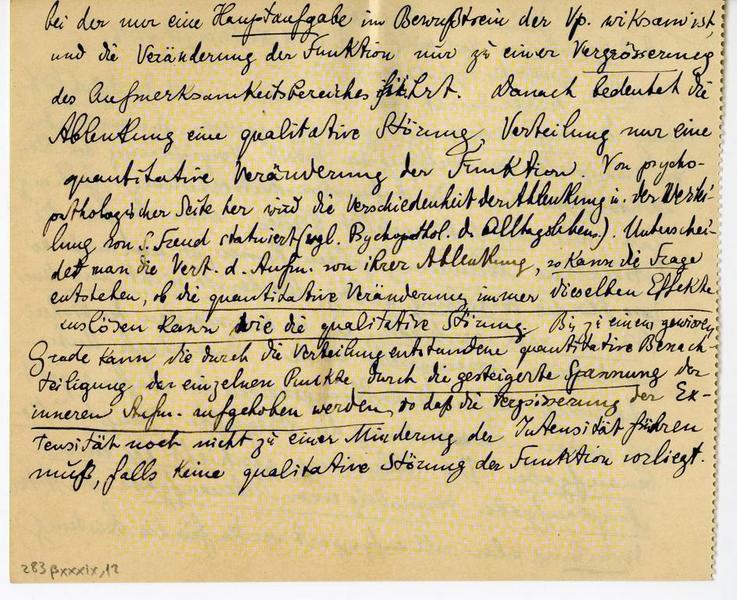 bei der nur eine Hauptaufgabe im Bewußtsein der Vp. wirksam ist,
und die Veränderung der Funktion nur zu einer Vergrösserung
des Aufmerksamkeitsbereiches führt. Danach bedeutet die
Ablenkung eine qualitative Störung, Verteilung nur eine
quantitative Veränderung der Funktion. Von psycho-
pathologischer Seite her wird die Verschiedenheit der Ablenkung u. der Vertei-
lung von S. Freud statuiert (vgl. Psychopathol. d. Alltagslebens). Unterschei-
det man die Vert. d. Aufm. von ihrer Ablenkung, so kann die Frage
entstehen, ob die quantitative Veränderung immer dieselben Effekte
auslösen kann wie die qualitative Störung. Bis zu einem gewissen
Grade kann die durch die Verteilung entstandene quantitative Benach-
teiligung der einzelnen Punkte durch die gesteigerte Spannung der
inneren Aufm. aufgehoben werden, so daß die Vergrösserung der Ex-
tensität noch nicht zu einer Minderung der Intensität führen
muß, falls keine qualitative Störung der Funktion vorliegt.
283 βxxxix,12